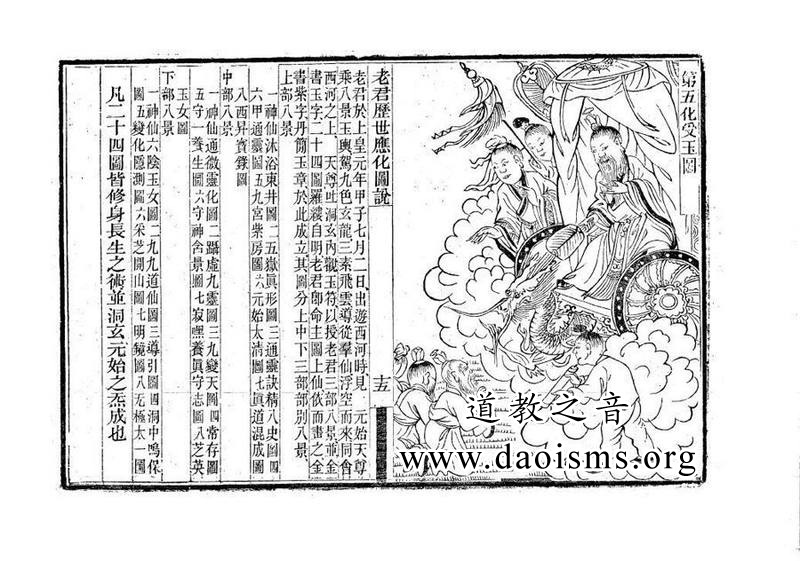 第五化受玉圖
老君歷世應化圖說
十五
老君於上皇元年甲子七月二日出遊西河時見元始天尊
乘八景玉輿駕九色玄龍三素飛雲導從羣仙浮空而來同會
西河之上天尊吐洞玄內觀玉符以授老君三部八景並金
書玉字二十四圖羅縷自明老君卽命主圖上仙依而畫之金
書紫字丹簡玉章於此成立其圖分上中下三部部別八景
上部八景
一神仙沐浴東井圖二五嶽眞形圖三通靈訣精八史圖四
六甲通靈圖五九宮紫房圖六元始太清圖七眞道混成圖
八西昇寶錄圖
中部八景
一神仙通微靈化圖二躡虛九靈圖三九變天圖四常存圖
五守一養生圖六守神舍景圖七寂嘿養眞守志圖八芝英
玉女圖
下部八景
一神仙六陰玉女圖二九九道仙圖三導引圖四洞中鳴保
圖五變化隱測圖六采芝開山圖七明鏡圖八无極太一圖
凡二十四圖皆修身長生之術並洞玄元始之炁成也
道教之音
www.daoisms.org